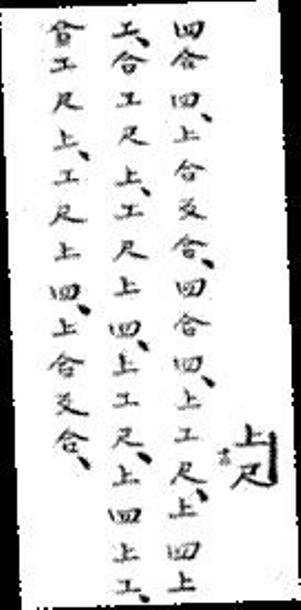 上尺
四合四、上合反合、四合四、上工尺、上四上
工、合工尺上、工尺上四、上工尺、上四上工、
合工尺上、工尺上四、上合反合、